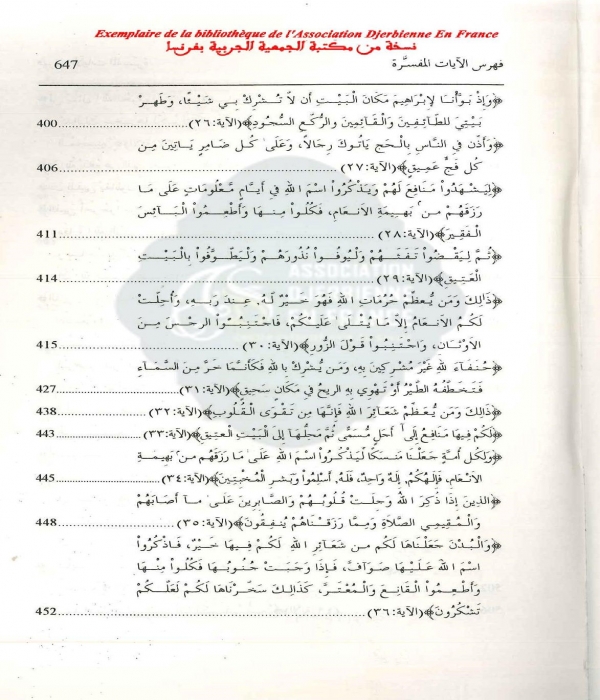 Exemplaire de la bibliothèque de l'Association Djerbienne En France
نسخة من مكتبة الجمعية الجربية بفرنسا
فهرس الآيات المفسَّرة 647
﴿وَإِذْ بَوَّأْنَا لِإِبْرَاهِيمَ مَكَانَ الْبَيْتِ أَن لاَّ تُشْرِكْ بِي شَيْئًا، وَطَهِّرْ
بَيْتِيَ لِلطَّآئِفِينَ وَالْقَآئِمِينَ وَالرُّكَّعِ السُّجُودِ﴾(الآية:٢٦)......400
﴿وَأَذِّن فِي النَّاسِ بِالْحَجِّ يَاتُوكَ رِجَالاً، وَعَلَىٰ كُلِّ ضَامِرٍ يَاتِينَ مِن
كُلِّ فَجٍّ عَمِيقٍ﴾(الآية:٢٧)......406
﴿لِيَشْهَدُواْ مَنَافِعَ لَهُمْ وَيَذْكُرُواْ اسْمَ اللهِ فِي أَيَّامٍ مَّعْلُومَاتٍ عَلَىٰ مَا
رَزَقَهُم مِّن بَهِيمَةِ الاَنْعَامِ، فَكُلُواْ مِنْهَا وَأَطْعِمُواْ الْبَآئِسَ
الْفَقِيرَ﴾(الآية:٢٨)......411
﴿ثُمَّ لِيَقْضُواْ تَفَثَهُمْ وَلْيُوفُواْ نُذُورَهُمْ وَلْيَطَّوَّفُواْ بِالْبَيْتِ
الْعَتِيقِ﴾(الآية:٢٩)......414
﴿ذَالِكَ وَمَن يُّعَظِّمْ حُرُمَاتِ اللهِ فَهُوَ خَيْرٌ لَّهُ, عِندَ رَبِّهِ, وَأُحِلَّتْ
لَكُمُ الاَنْعَامُ إِلاَّ مَا يُتْلَىٰ عَلَيْكُمْ، فَاجْتَنِبُواْ الرِّجْسَ مِنَ
الاَوْثَانِ، وَاجْتَنِبُواْ قَوْلَ الزُّورِ﴾(الآية:٣٠)......415
﴿حُنَفَآءَ لِلهِ غَيْرَ مُشْرِكِينَ بِهِ، وَمَن يُّشْرِكْ بِاللهِ فَكَأَنَّمَا خَرَّ مِنَ السَّمَآءِ
فَتَخَطَّفُهُ الطَّيْرُ أَوْ تَهْوِي بِهِ الرِّيحُ فِي مَكَانٍ سَحِيقٍ﴾(الآية:٣١)......427
﴿ذَالِكَ وَمَن يُّعَظِّمْ شَعَآئِرَ اللهِ فَإِنَّهَا مِن تَقْوَى الْقُلُوبِ﴾(الآية:٣٢)......438
﴿لَكُمْ فِيهَا مَنَافِعُ إِلَىٰ أَجَلٍ مُّسَمًّى ثُمَّ مَحِلُّهَا إِلَى الْبَيْتِ الْعَتِيقِ﴾(الآية:٣٣)......443
﴿وَلِكُلِّ أُمَّةٍ جَعَلْنَا مَنسَكًا لِّيَذْكُرُواْ اسْمَ اللهِ عَلَىٰ مَا رَزَقَهُم مِّن بَهِيمَةِ
الاَنْعَامِ، فَإِلَٰهُكُمْ, إِلَٰهٌ وَاحِدٌ، فَلَهُ, أَسْلِمُواْ وَبَشِّرِ الْمُخْبِتِينَ﴾(الآية:٣٤)......445
﴿الذِينَ إِذَا ذُكِرَ اللهُ وَجِلَتْ قُلُوبُهُمْ وَالصَّابِرِينَ عَلَىٰ مَآ أَصَابَهُمْ
وَالْمُقِيمِي الصَّلاَةِ وَمِمَّا رَزَقْنَاهُمْ يُنفِقُونَ﴾(الآية:٣٥)......448
﴿وَالْبُدْنَ جَعَلْنَاهَا لَكُم مِّن شَعَآئِرِ اللهِ لَكُمْ فِيهَا خَيْرٌ، فَاذْكُرُواْ
اسْمَ اللهِ عَلَيْهَا صَوَآفَّ، فَإِذَا وَجَبَتْ جُنُوبُهَا فَكُلُواْ مِنْهَا
وَأَطْعِمُواْ الْقَانِعَ وَالْمُعْتَرَّ، كَذَالِكَ سَخَّرْنَاهَا لَكُمْ لَعَلَّكُمْ
تَشْكُرُونَ﴾(الآية:٣٦)......452